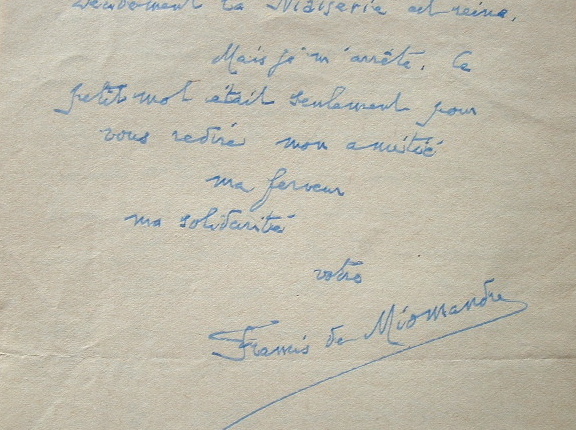 Seulement la Niaiserie est reine.
Mais je m'arrête. Ce
petit mot était seulement pour
vous redire mon amitié
ma ferveur
ma solidarité
votre
Francis de Miomandre